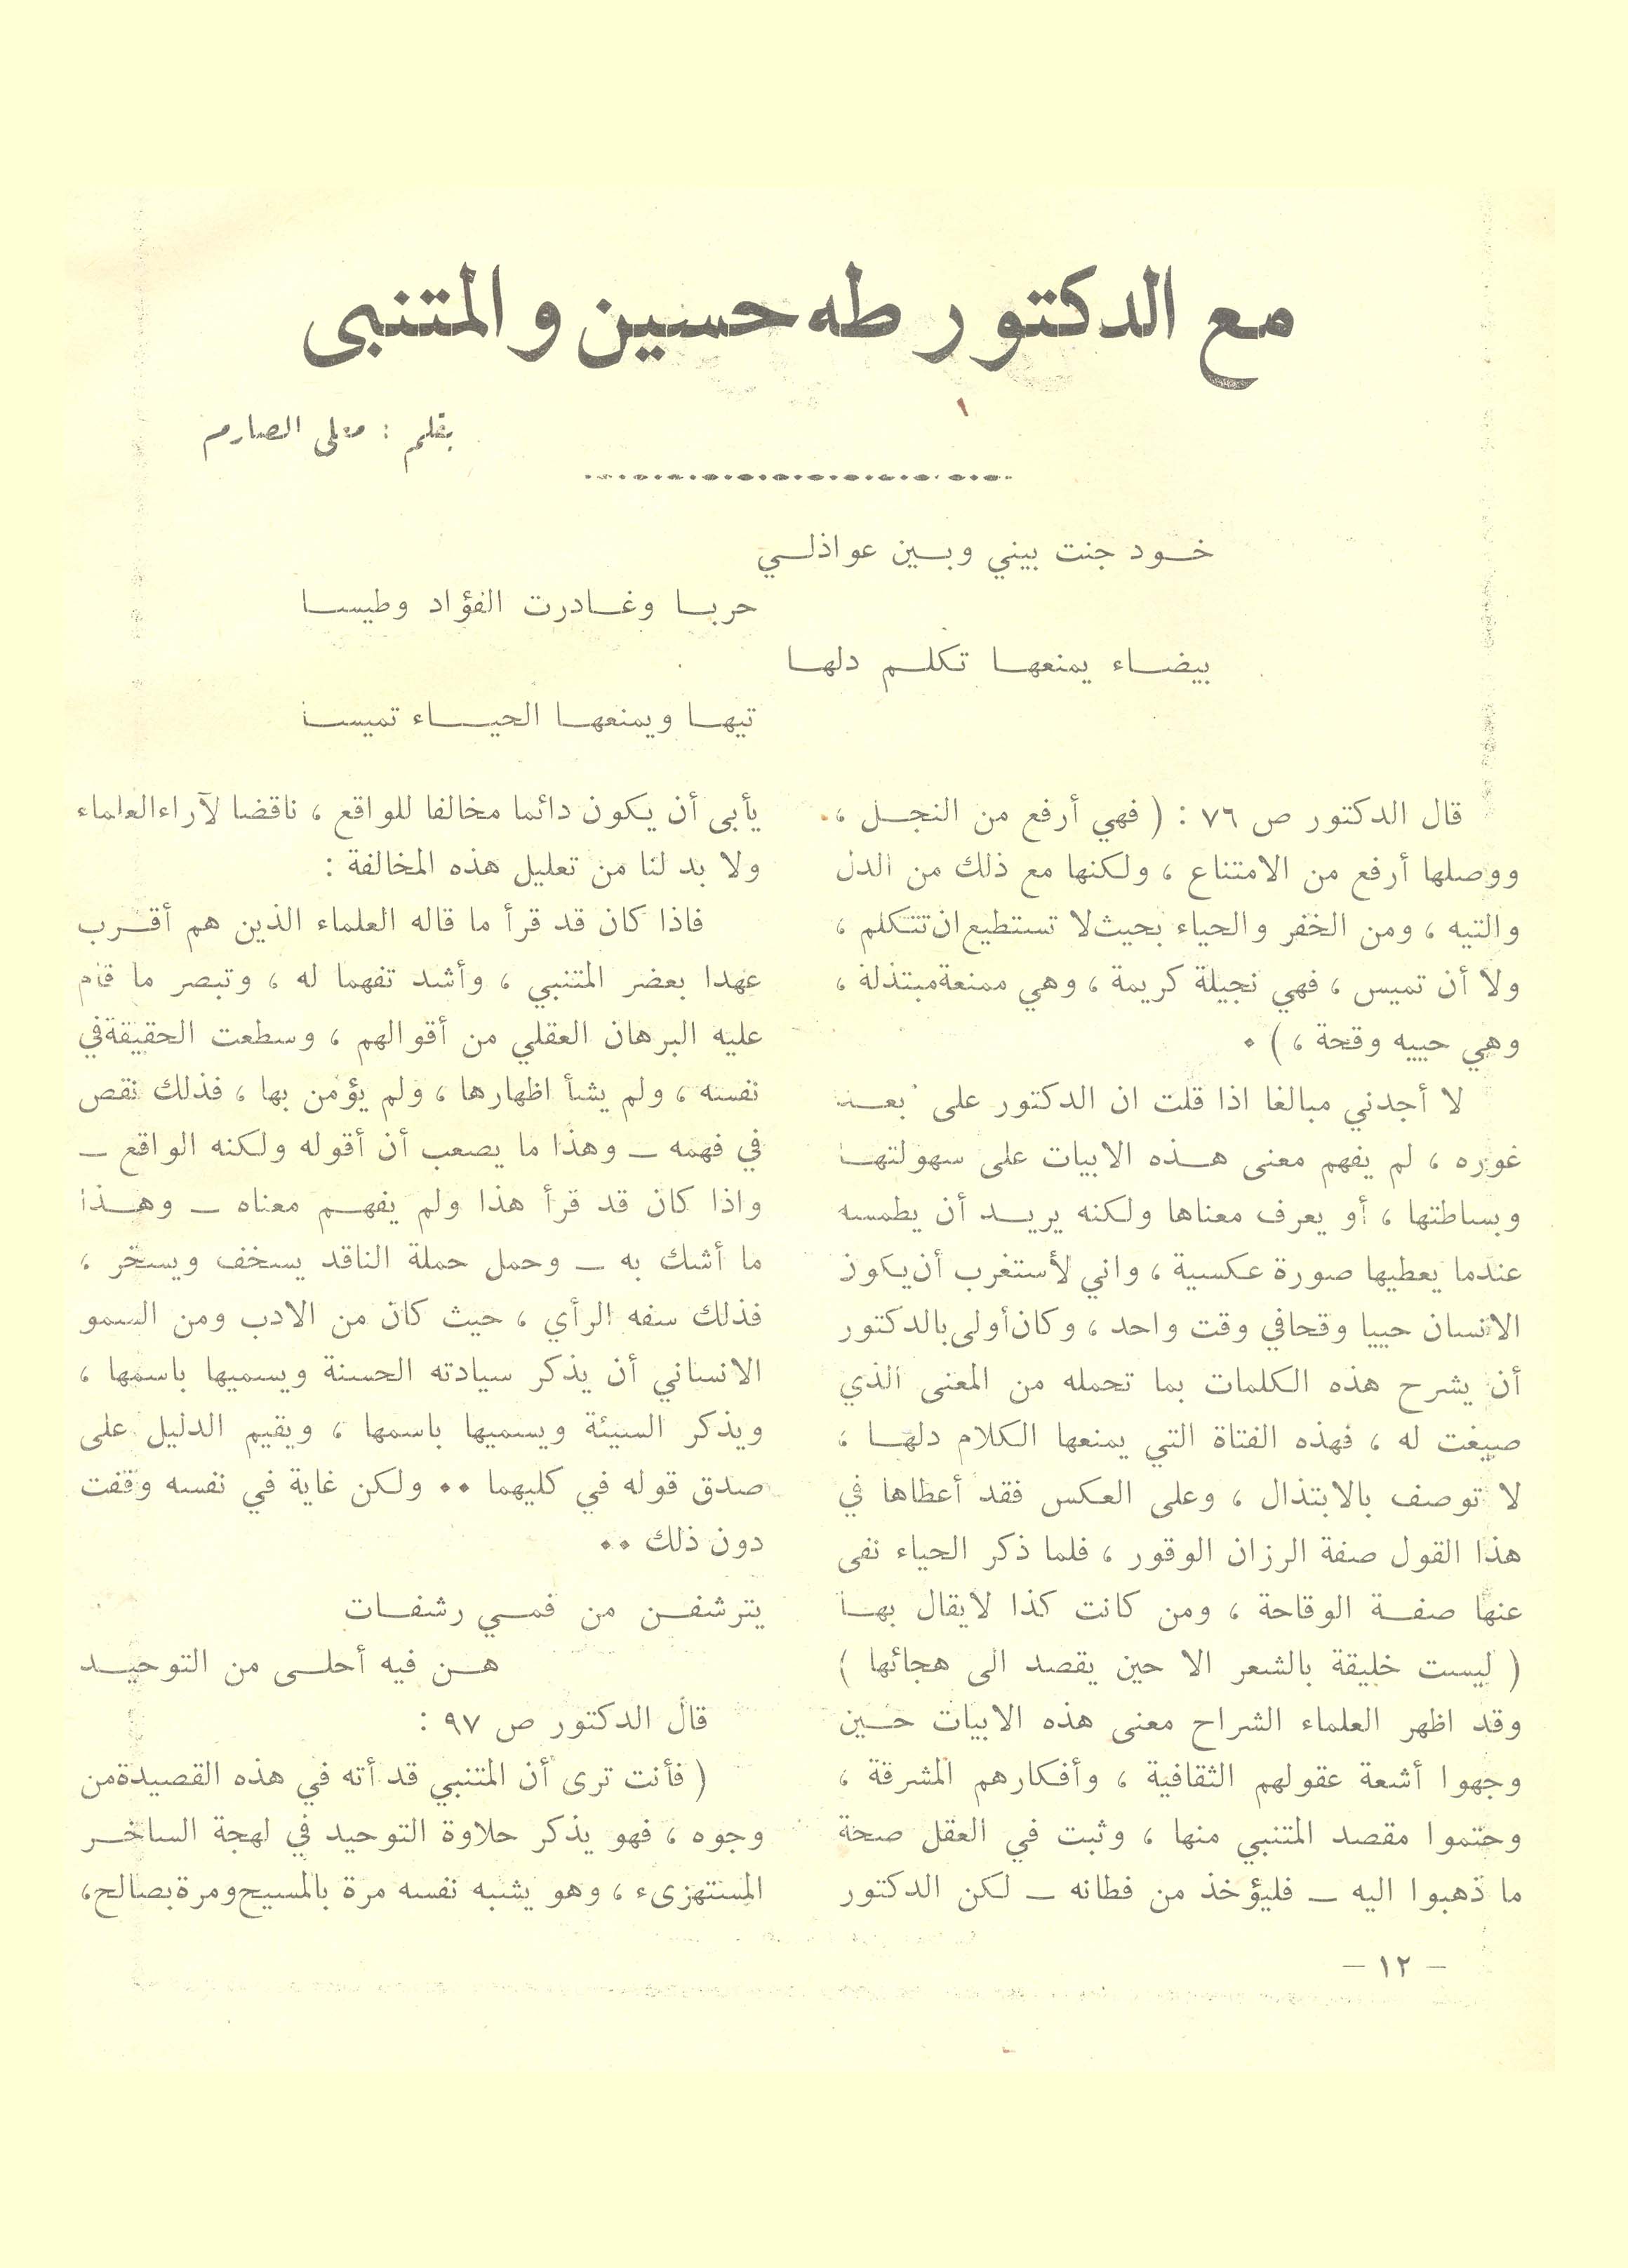 مع الدكتور طه حسين والمتنبي
١
بقلم : علي الصارم
خود جنت بيني وبين عواذلي
حربا وغادرت الفؤاد وطيسا
بيضاء يمنعها تكلم دلها
تيها ويمنعها الحياء تميسا
قال الدكتور ص ٧٦ : ( فهي أرفع من النجل ،
ووصلها أرفع من الامتناع ، ولكنها مع ذلك من الدل
والتيه ، ومن الخفر والحياء بحيث لا تستطيع ان تتكلم ،
ولا أن تميس ، فهي نجيلة كريمة ، وهي ممنعة مبتذلة ،
وهي حييه وقحة ، ) ٠
لا أجدني مبالغا اذا قلت ان الدكتور على بعد
غوره ، لم يفهم معنى هذه الابيات على سهولتها
وبساطتها ، أو يعرف معناها ولكنه يريد أن يطمسه
عندما يعطيها صورة عكسية ، واني لأستغرب أن يكون
الانسان حييا وقحا في وقت واحد ، وكان أولى بالدكتور
أن يشرح هذه الكلمات بما تحمله من المعنى الذي
صيغت له ، فهذه الفتاة التي يمنعها الكلام دلها ،
لا توصف بالابتذال ، وعلى العكس فقد أعطاها في
هذا القول صفة الرزان الوقور ، فلما ذكر الحياء نفى
عنها صفة الوقاحة ، ومن كانت كذا لا يقال بها
( ليست خليقة بالشعر الا حين يقصد الى هجائها )
وقد اظهر العلماء الشراح معنى هذه الابيات حين
وجهوا أشعة عقولهم الثقافية ، وأفكارهم المشرقة ،
وحتموا مقصد المتنبي منها ، وثبت في العقل صحة
ما ذهبوا اليه – فليؤخذ من فطانه – لكن الدكتور
يأبى أن يكون دائما مخالفا للواقع ، ناقضا لآراء العلماء
ولا بد لنا من تعليل هذه المخالفة :
فاذا كان قد قرأ ما قاله العلماء الذين هم أقرب
عهدا بعضر المتنبي ، وأشد تفهما له ، وتبصر ما قام
عليه البرهان العقلي من أقوالهم ، وسطعت الحقيقة في
نفسه ، ولم يشأ اظهارها ، ولم يؤمن بها ، فذلك نقص
في فهمه – وهذا ما يصعب أن أقوله ولكنه الواقع –
واذا كان قد قرأ هذا ولم يفهم معناه – وهذا
ما أشك به – وحمل حملة الناقد يسخف ويسخر ،
فذلك سفه الرأي ، حيث كان من الادب ومن السمو
الانساني أن يذكر سيادته الحسنة ويسميها باسمها ،
ويذكر السيئة ويسميها باسمها ، ويقيم الدليل على
صدق قوله في كليهما ٠٠ ولكن غاية في نفسه وقفت
دون ذلك ٠٠
يترشفن من فمي رشفات
هن فيه أحلى من التوحيد
قال الدكتور ص ٩٧ :
( فأنت ترى أن المتنبي قد أته في هذه القصيدة من
وجوه ، فهو يذكر حلاوة التوحيد في لهجة الساخر
المستهزىء ، وهو يشبه نفسه مرة بالمسيح ومرة بصالح ،
– ١٢ –